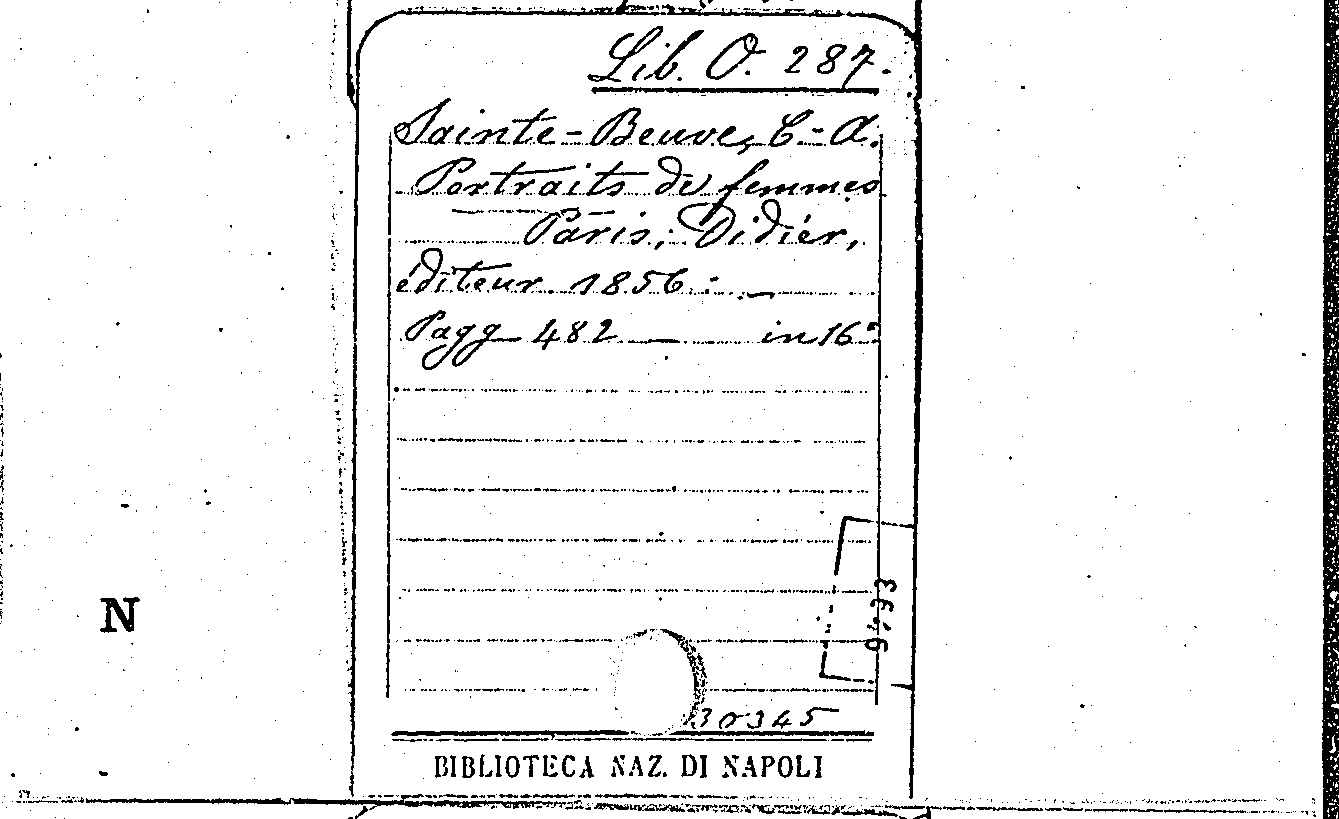 Lib. O. 287.
Sainte-Beuve, C.-A.
Portraits de femmes
Paris, Didier,
éditeur 1856. —
Pagg 482 — in 16°
N
30345
BIBLIOTECA NAZ. DI NAPOLI